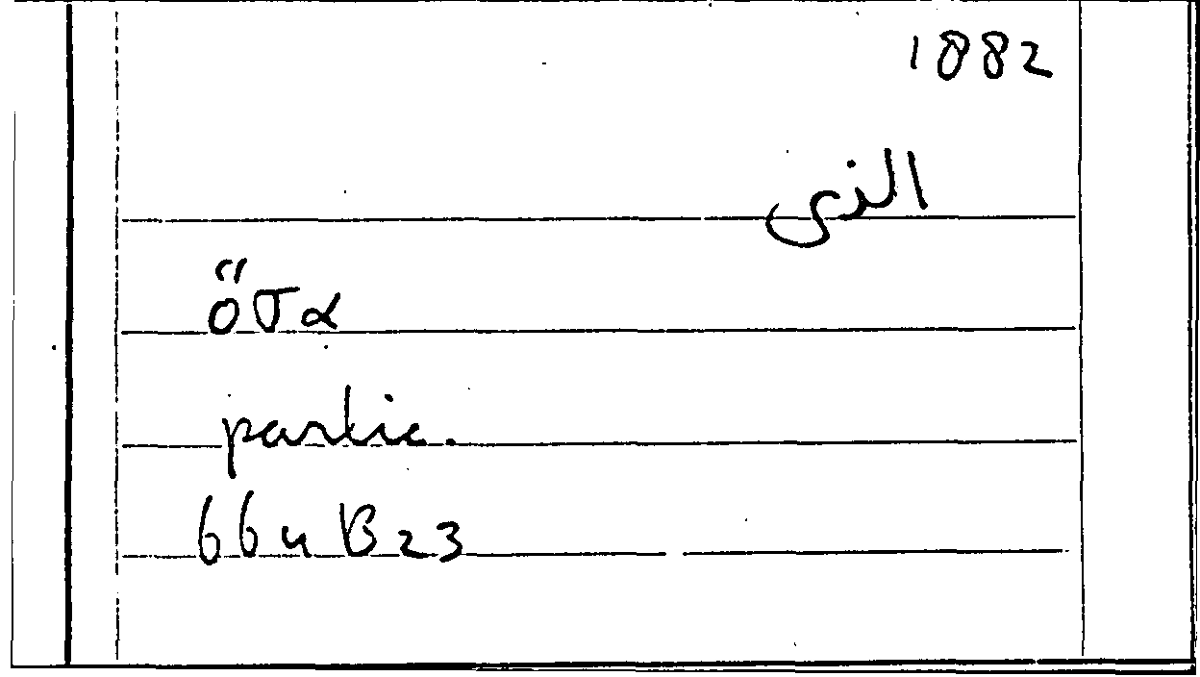 1882
الذى
ὅσα
partic.
664 B23